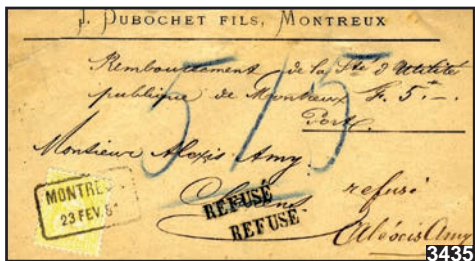 J. DUBOCHET FILS, MONTREUX
Remboursement de la Sté d'Utilité
publique de Montreux F. 5.–.
Port.
5/15
Monsieur Alexis Amy.
MONTRE
23 FEV. 8
REFUSÉ
REFUSÉ
refusé
Amy
3435